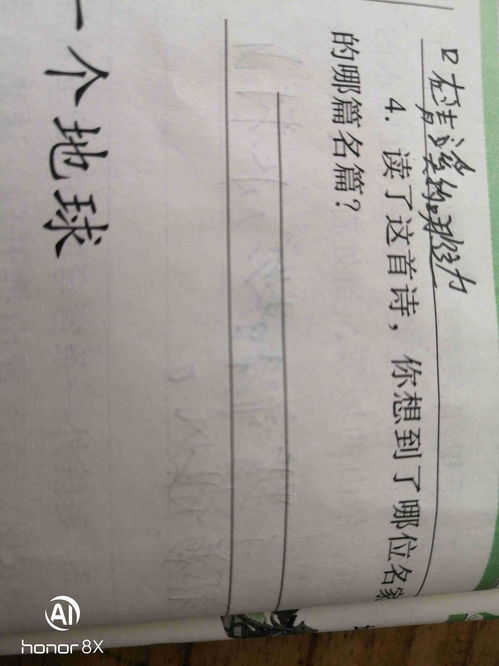 4. 读了这首诗，你想到了哪位名家
的哪篇名篇？
一个地球
AI
honor 8X